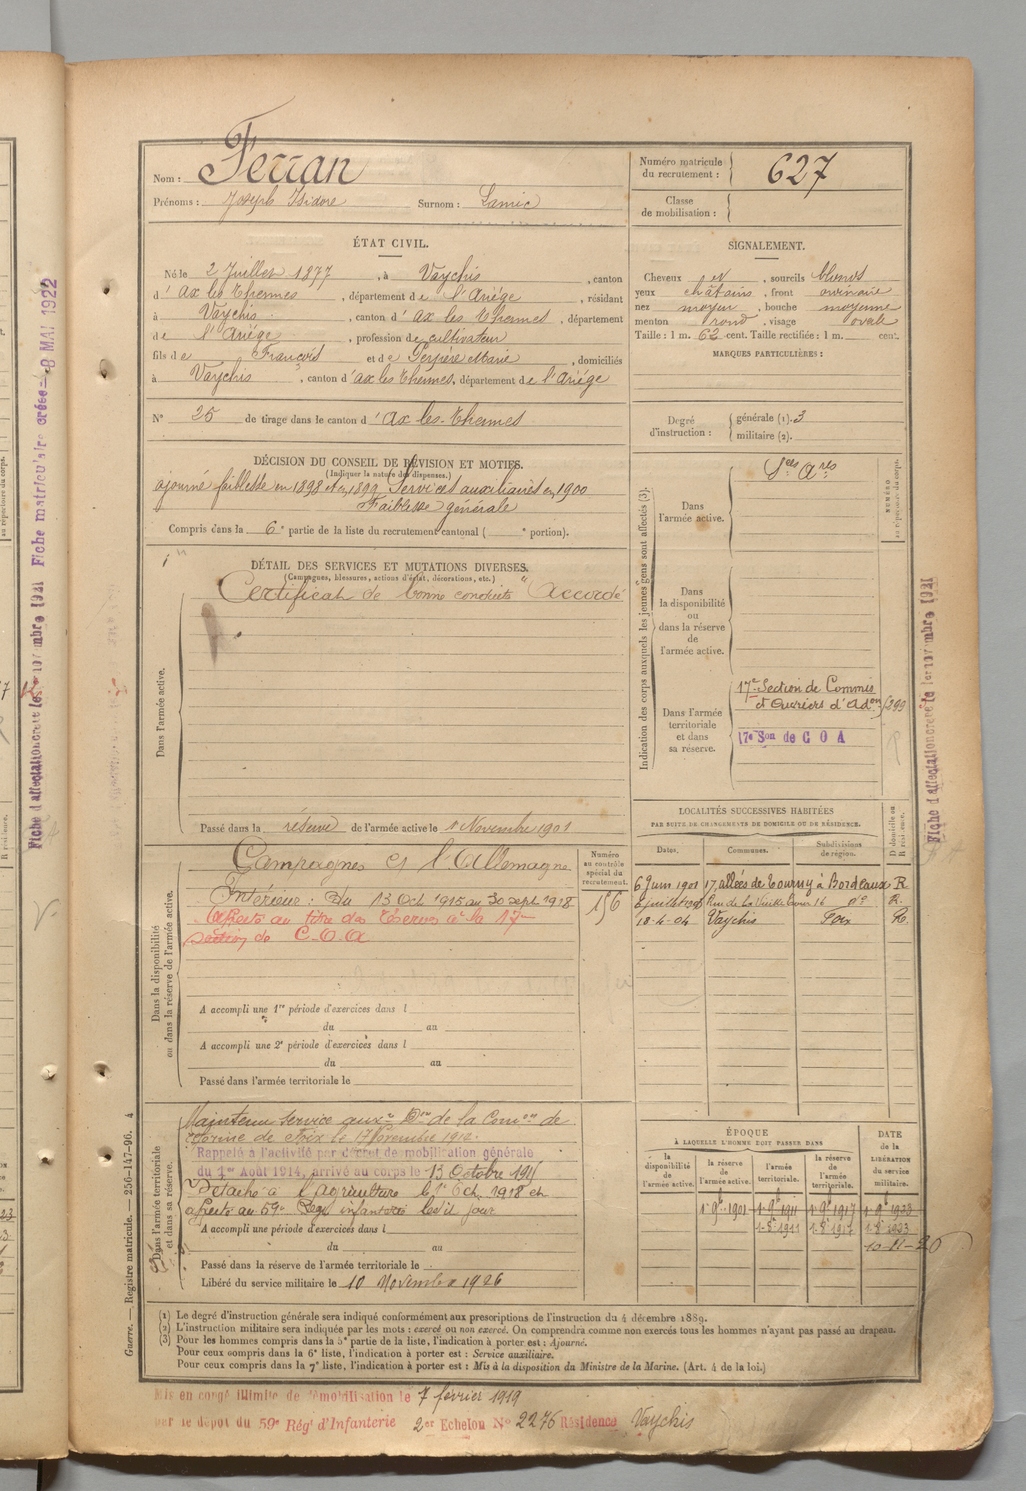 Nom : Ferran
Prénoms : Joseph Isidore Surnom : Lamic
Numéro matricule du recrutement : 627
Classe de mobilisation :
ÉTAT CIVIL.
Né le 2 Juillet 1877, à Vaychis, canton
d'Ax les Thermes, département de l'Ariége, résidant
à Vaychis, canton d'Ax les Thermes, département
de l'Ariége, profession de cultivateur
fils de François et de Perpère Marie, domiciliés
à Vaychis, canton d'ax les Thermes, département de l'Ariége
N° 25 de tirage dans le canton d'Ax-les-Thermes
SIGNALEMENT.
Cheveux et, sourcils blonds
yeux châtains, front ordinaire
nez moyen, bouche moyenne
menton rond, visage ovale
Taille : 1 m. 62 cent. Taille rectifiée : 1 m. cent.
MARQUES PARTICULIÈRES :
Degré d'instruction : générale (1). 3
militaire (2).
DÉCISION DU CONSEIL DE RÉVISION ET MOTIFS.
(Indiquer la nature des dispenses.)
ajourné faiblesse en 1898 et en 1899 Services auxiliaires en 1900
Faiblesse générale
Compris dans la 6e partie de la liste du recrutement cantonal ( e portion).
DÉTAIL DES SERVICES ET MUTATIONS DIVERSES.
(Campagnes, blessures, actions d'éclat, décorations, etc.)
Certificat de bonne conduite "Accordé"
Dans l'armée active.
Passé dans la réserve de l'armée active le 1 Novembre 1901
Indication des corps auxquels les jeunes gens sont affectés (3).
NUMÉRO au répertoire du corps.
Dans l'armée active.
Sces Ares
Dans la disponibilité ou dans la réserve de l'armée active.
Dans l'armée territoriale et dans sa réserve.
17e Section de Commis
et Ouvriers d'Adon
17e Son de C O A
LOCALITÉS SUCCESSIVES HABITÉES
PAR SUITE DE CHANGEMENTS DE DOMICILE OU DE RÉSIDENCE.
Dates. Communes. Subdivisions de région. D domicile ou R résidence.
6 Juin 1901 17, allées de Tourny à Bordeaux R
Rue de la Vieille Tour 16 do R.
18-4-04 Vaychis Foix R.
Numéro au contrôle spécial du recrutement.
156
Dans la disponibilité ou dans la réserve de l'armée active.
Campagnes Ct l'Allemagne
Intérieur : Du 13 Oct 1915 au 30 sept 1918
Affecté au titre des réserves à la 17e
section de C.O.A
A accompli une 1re période d'exercices dans l
du au
A accompli une 2e période d'exercices dans l
du au
Passé dans l'armée territoriale le
Dans l'armée territoriale et dans sa réserve.
Maintenu Service auxre Don de la Comon de
réforme de Foix le 17 Novembre 1914.
Rappelé à l'activité par décret de mobilisation générale
du 1er Août 1914, arrivé au corps le 13 Octobre 191
Détaché à l'agriculture le 1er Oct. 1918 et
affecté au 59e Regt infanterie le dit jour
A accompli une période d'exercices dans l
du au
Passé dans la réserve de l'armée territoriale le
Libéré du service militaire le 10 Novembre 1926
ÉPOQUE
À LAQUELLE L'HOMME DOIT PASSER DANS
DATE de la LIBÉRATION du service militaire.
la disponibilité de l'armée active. la réserve de l'armée active. l'armée territoriale. la réserve de l'armée territoriale.
1-9bre-1901 1-9bre 1911 1-9bre 1917 1-9bre 1923
1-8bre 1911 1-8bre 1917 1-8bre 1923
10-11-26
(1) Le degré d'instruction générale sera indiqué conformément aux prescriptions de l'instruction du 4 décembre 1889.
(2) L'instruction militaire sera indiquée par les mots : exercé ou non exercé. On comprendra comme non exercés tous les hommes n'ayant pas passé au drapeau.
(3) Pour les hommes compris dans la 5e partie de la liste, l'indication à porter est : Ajourné.
Pour ceux compris dans la 6e liste, l'indication à porter est : Service auxiliaire.
Pour ceux compris dans la 7e liste, l'indication à porter est : Mis à la disposition du Ministre de la Marine. (Art. 4 de la loi.)
Mis en congé illimité de démobilisation le 7 février 1919
par le dépôt du 59e Régt d'Infanterie 2er Echelon N° 2276 Résidence Vaychis
Guerre. — Registre matricule. — 256-147-96. 4
Fiche d'affectation créée le 1er novembre 1921 Fiche matriculaire créée le 8 MAI 1922
Fiche d'affectation créée le 1er novembre 1921